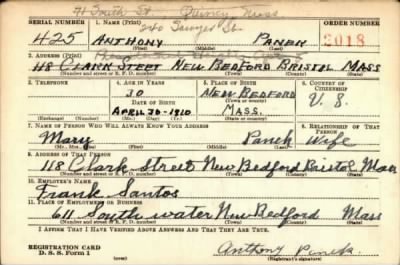 71 South St Quincy Mass
SERIAL NUMBER 1. NAME (Print) 240 Sawyer St. ORDER NUMBER
425 ANTHONY PANEK 2018
(First) (Middle) (Last)
2. ADDRESS (Print)
118 CLARK STREET NEW BEDFORD BRISTOL MASS
(Number and street or R. F. D. number) (Town) (County) (State)
3. TELEPHONE 4. AGE IN YEARS 5. PLACE OF BIRTH 6. COUNTRY OF CITIZENSHIP
30 NEW BEDFORD
DATE OF BIRTH (Town or county) U. S.
APRIL 26-1910 MASS.
(Exchange) (Number) (Mo.) (Day) (Yr.) (State or country)
7. NAME OF PERSON WHO WILL ALWAYS KNOW YOUR ADDRESS 8. RELATIONSHIP OF THAT PERSON
Mary Panek Wife
(Mr., Mrs., Miss) (First) (Middle) (Last)
9. ADDRESS OF THAT PERSON
118 Clark Street New Bedford Bristol Mass
(Number and street or R. F. D. number) (Town) (County) (State)
10. EMPLOYER'S NAME
Frank Santos
11. PLACE OF EMPLOYMENT OR BUSINESS
611 South water New Bedford Mass
(Number and street or R. F. D. number) (Town) (County) (State)
I AFFIRM THAT I HAVE VERIFIED ABOVE ANSWERS AND THAT THEY ARE TRUE.
REGISTRATION CARD
D. S. S. Form 1 (over) Anthony Panek
(Registrant's signature)